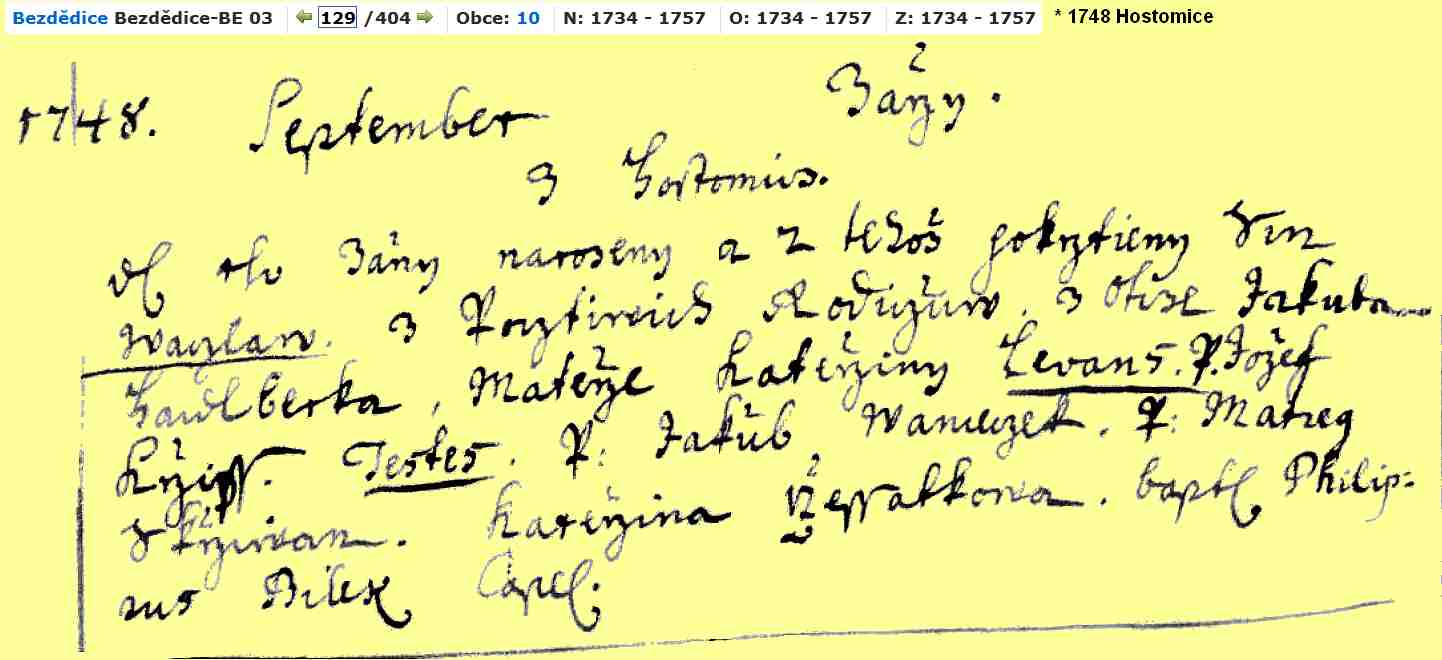 Bezdědice Bezdědice-BE 03 129 /404 Obce: 10 N: 1734 - 1757 O: 1734 - 1757 Z: 1734 - 1757 * 1748 Hostomice
1748. September Zařzy.
Z Hostomic.
Zářzy narozeny a z tehož pokrztieny Syn
Waczlaw. z Pocztiwich Rodiczuw. z Otcze Jakuba
Haidlberka, Materže Kateržiny Levans. P. Jožef
Kržiss. Testes. P: Jakub Waniczek. P: Matieg
Skrziwan. Kateržina bapt. Philip-
nus Bilek Capel.